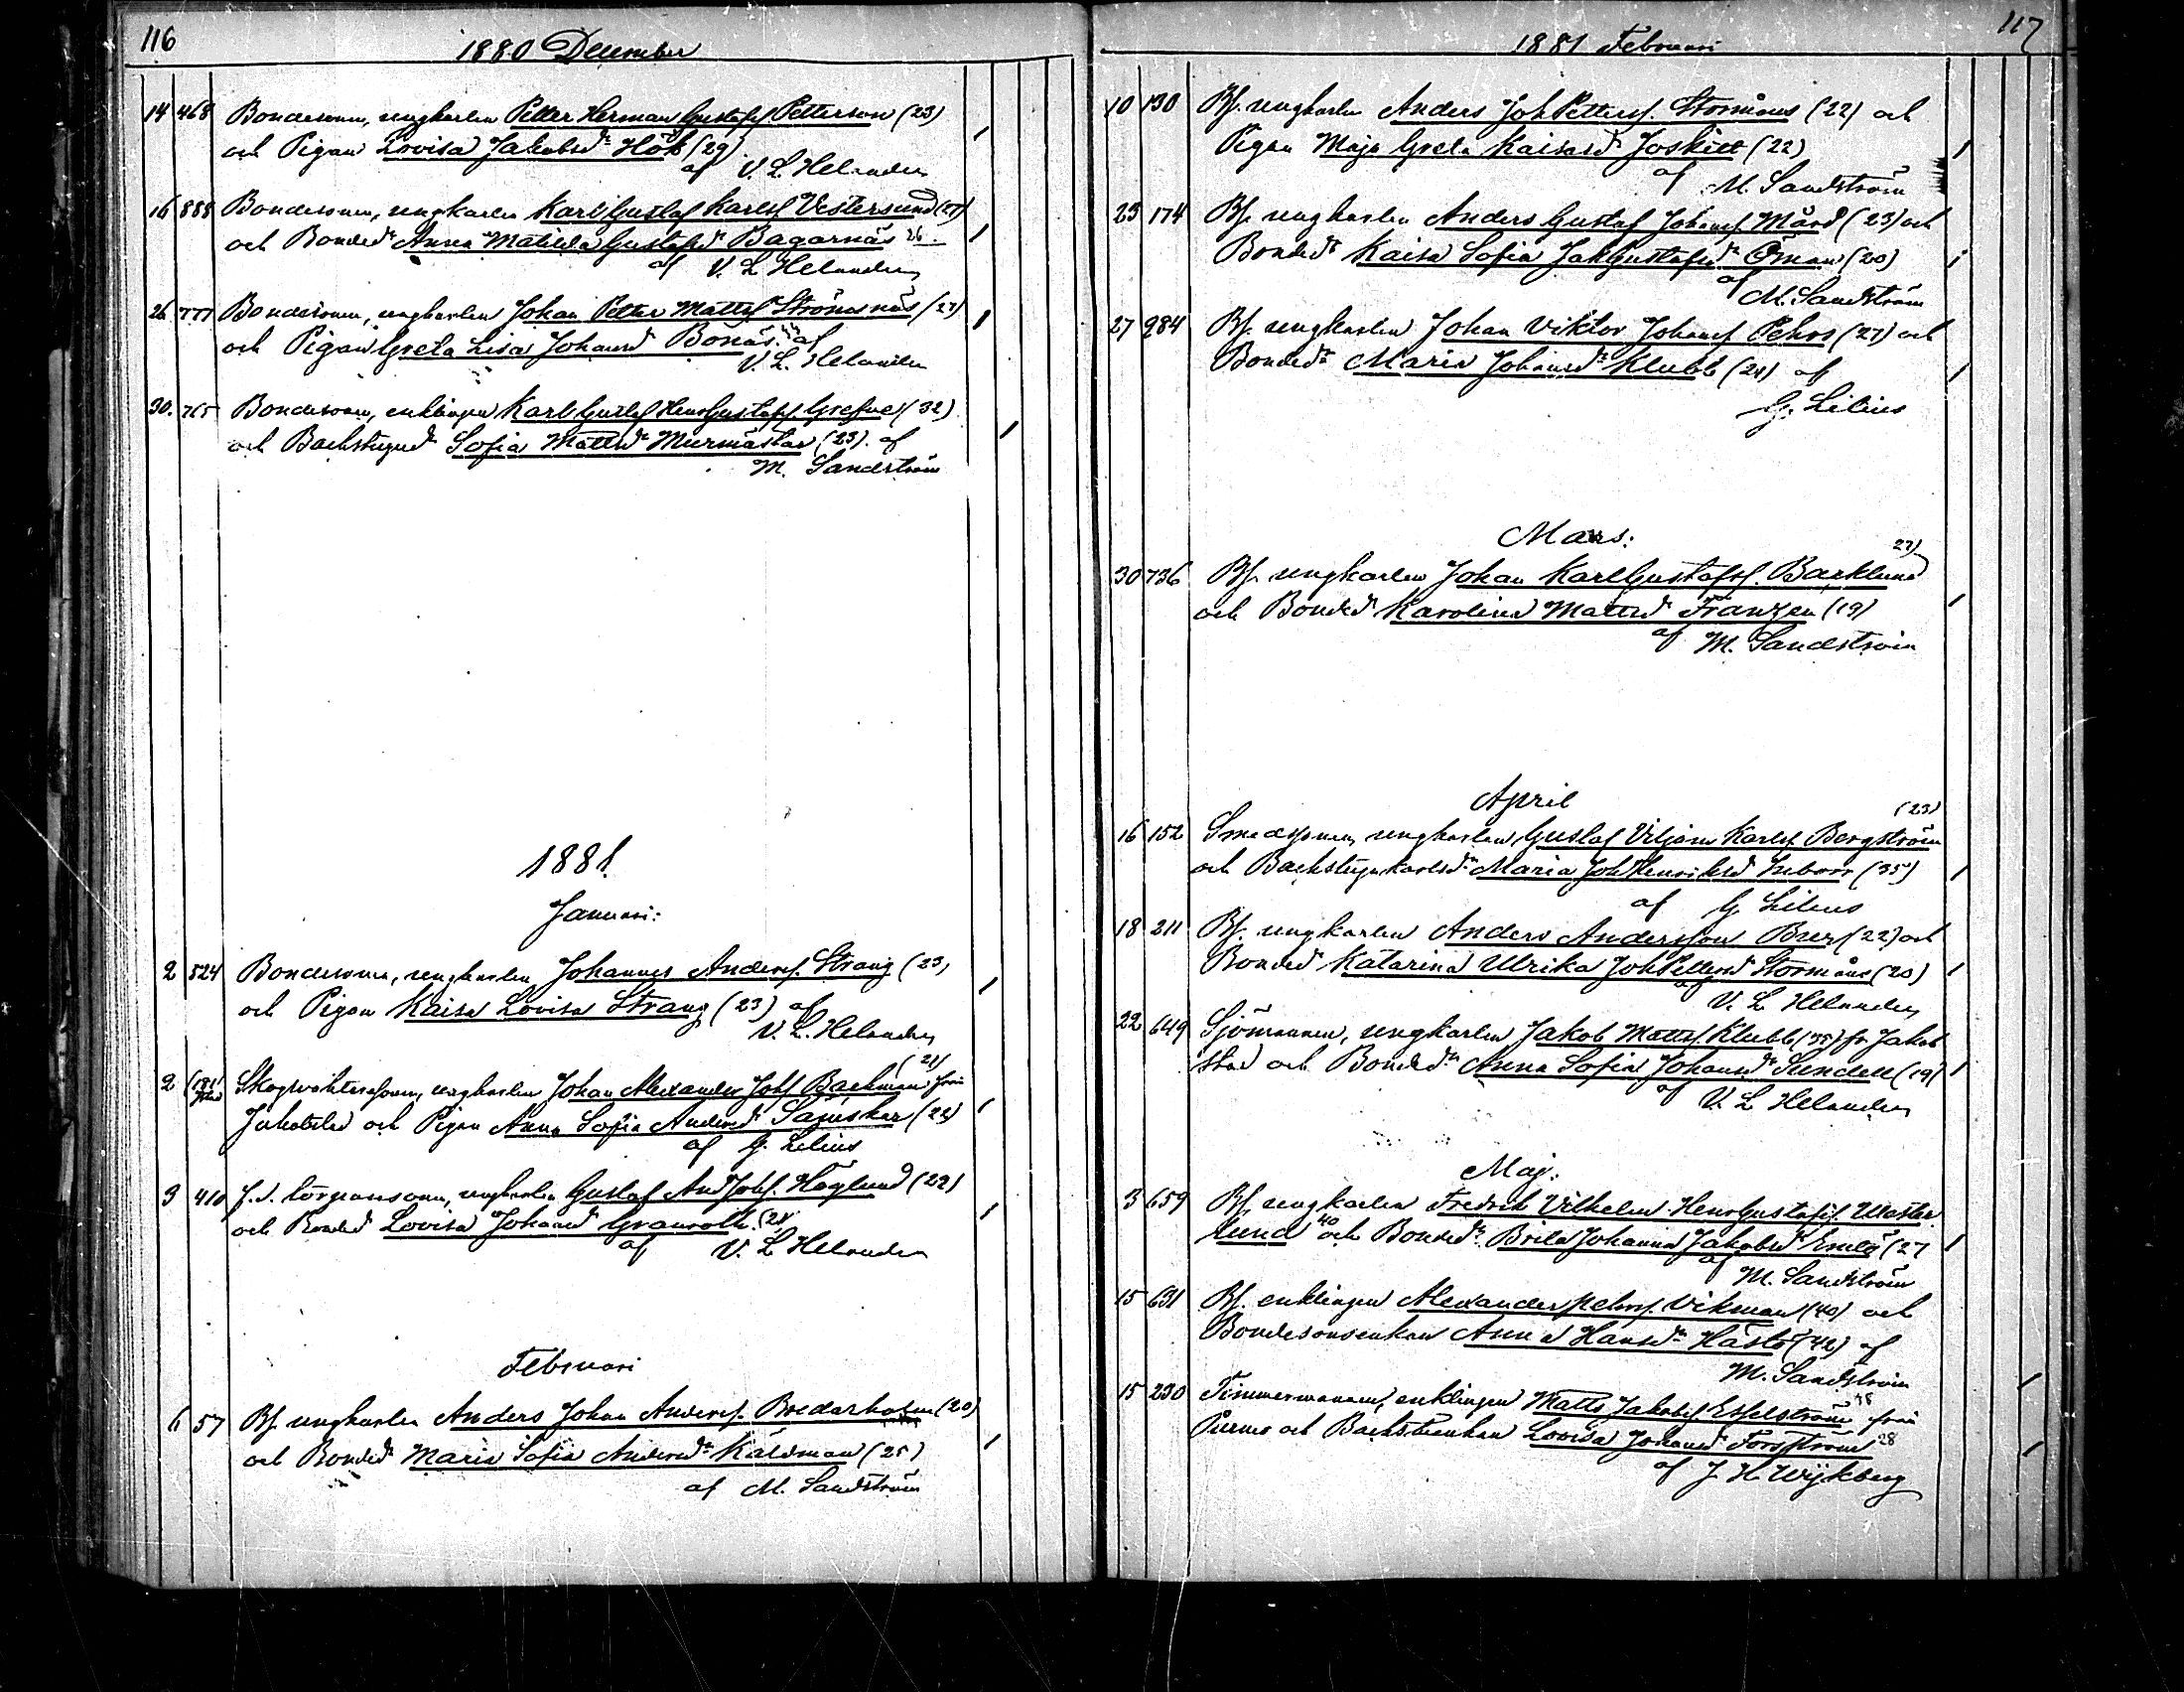 116
1880 December
14 468 Bondesonen, ungkarlen Petter Herman Gustafss. Petterson (23)
och Pigan Lovisa Jakobsdr Hök (29)
af V. L. Helander
16 888 Bondesonen, ungkarlen Karl Gustaf Karlss. Vestersund (27)
och Bondedr Anna Matilda Gustafsdr Bagarnäs 26.
af V. L. Helander
26 777 Bondesonen, ungkarlen Johan Petter Mattss. Strömsnäs (27)
och Pigan Greta Lisa Johansdr Bonäs af
V. L. Helander
30. 765 Bondesonen, enklingen Karl Gustaf HenrGustafss. Grefvas (32)
och Backstugudr Sofia Mattsdr Murmästar (23). af
M. Sandström
1881.
Januari:
2 524 Bondesonen, ungkarlen Johannes Anderss. Strang (23,
och Pigan Kaisa Lovisa Strang (23) af
V. L. Helander
(21)
2 Skogvaktaresonen, ungkarlen Johan Alexander Johss Backman från
Jakobstad och Pigan Anna Sofia Andersdr Sämskar (22)
af G. Lilius
3 410 f. d. torparesonen, ungkarlen Gustaf And Johss. Höglund (22)
och Bonded Lovisa Johansd Granroth. (21
af V. L. Helander
Februari
6 57 Bs. ungkarlen Anders Johan Anderss. Bredarholm (20)
och Bondedr Maria Sofia Andersdr Källman (25)
af M. Sandström
117
1881 Februari
10 130 Bs. ungkarlen Anders Joh Petterss. Stormåns (22) och
Pigan Maja Greta Kaisasdr Joskitt (22)
af M. Sandström
23 174 Bs. ungkarlen Anders Gustaf Johanss. Mård (23) och
Bondedr Kaisa Sofia JakGustafsdr Öman (20)
af M. Sandström
27 984 Bs. ungkarlen Johan Viktor Johanss Pehrs (27) och
Bondedr Maria Johansdr Klubb (21) af
G. Lilius
Mars:
27)
30 736 Bs. ungkarlen Johan Karl Gustafss. Backlund
och Bonded Karolina Mattsdr Franzen (19)
af M. Sandström
April
(23)
16 152 Smedsonen, ungkarlen Gustaf Viljam Karlss. Bergström
och Backstugukarlsdr Maria Joh Henriksd Inborr (35)
af G. Lilius
18 211 Bs. ungkarlen Anders Andersson Brez (22) och
Bonded Katarina Ulrika JohPettersd Stormåns (20)
af V. L. Helander
22 649 Sjömannen, ungkarlen Jakob Mattss. Klubb (35) fr. Jakob
stad och Bondedr Anna Sofia Johansdr Sundell (19)
af V. L. Helander
Maj:
3 659 Bs. ungkarlen Fredrik Vilhelm HenrGustafss. Wester
lund 40 och Bondedr Brita Johanna Jakobsdr Emlö (27
af M. Sandström
15 631 Bs. enklingen Alexander Pehrss. Vikman (40) och
Bondesonsenkan Anna Hansdr Hästö (42) af
M. Sandström
15 230 Timmermannen, enklingen Matts Jakobss. Esselström 48 från
Purmo och Backstuenkan Lovisa Johansd Forsström 28
af J. H. Wijkberg